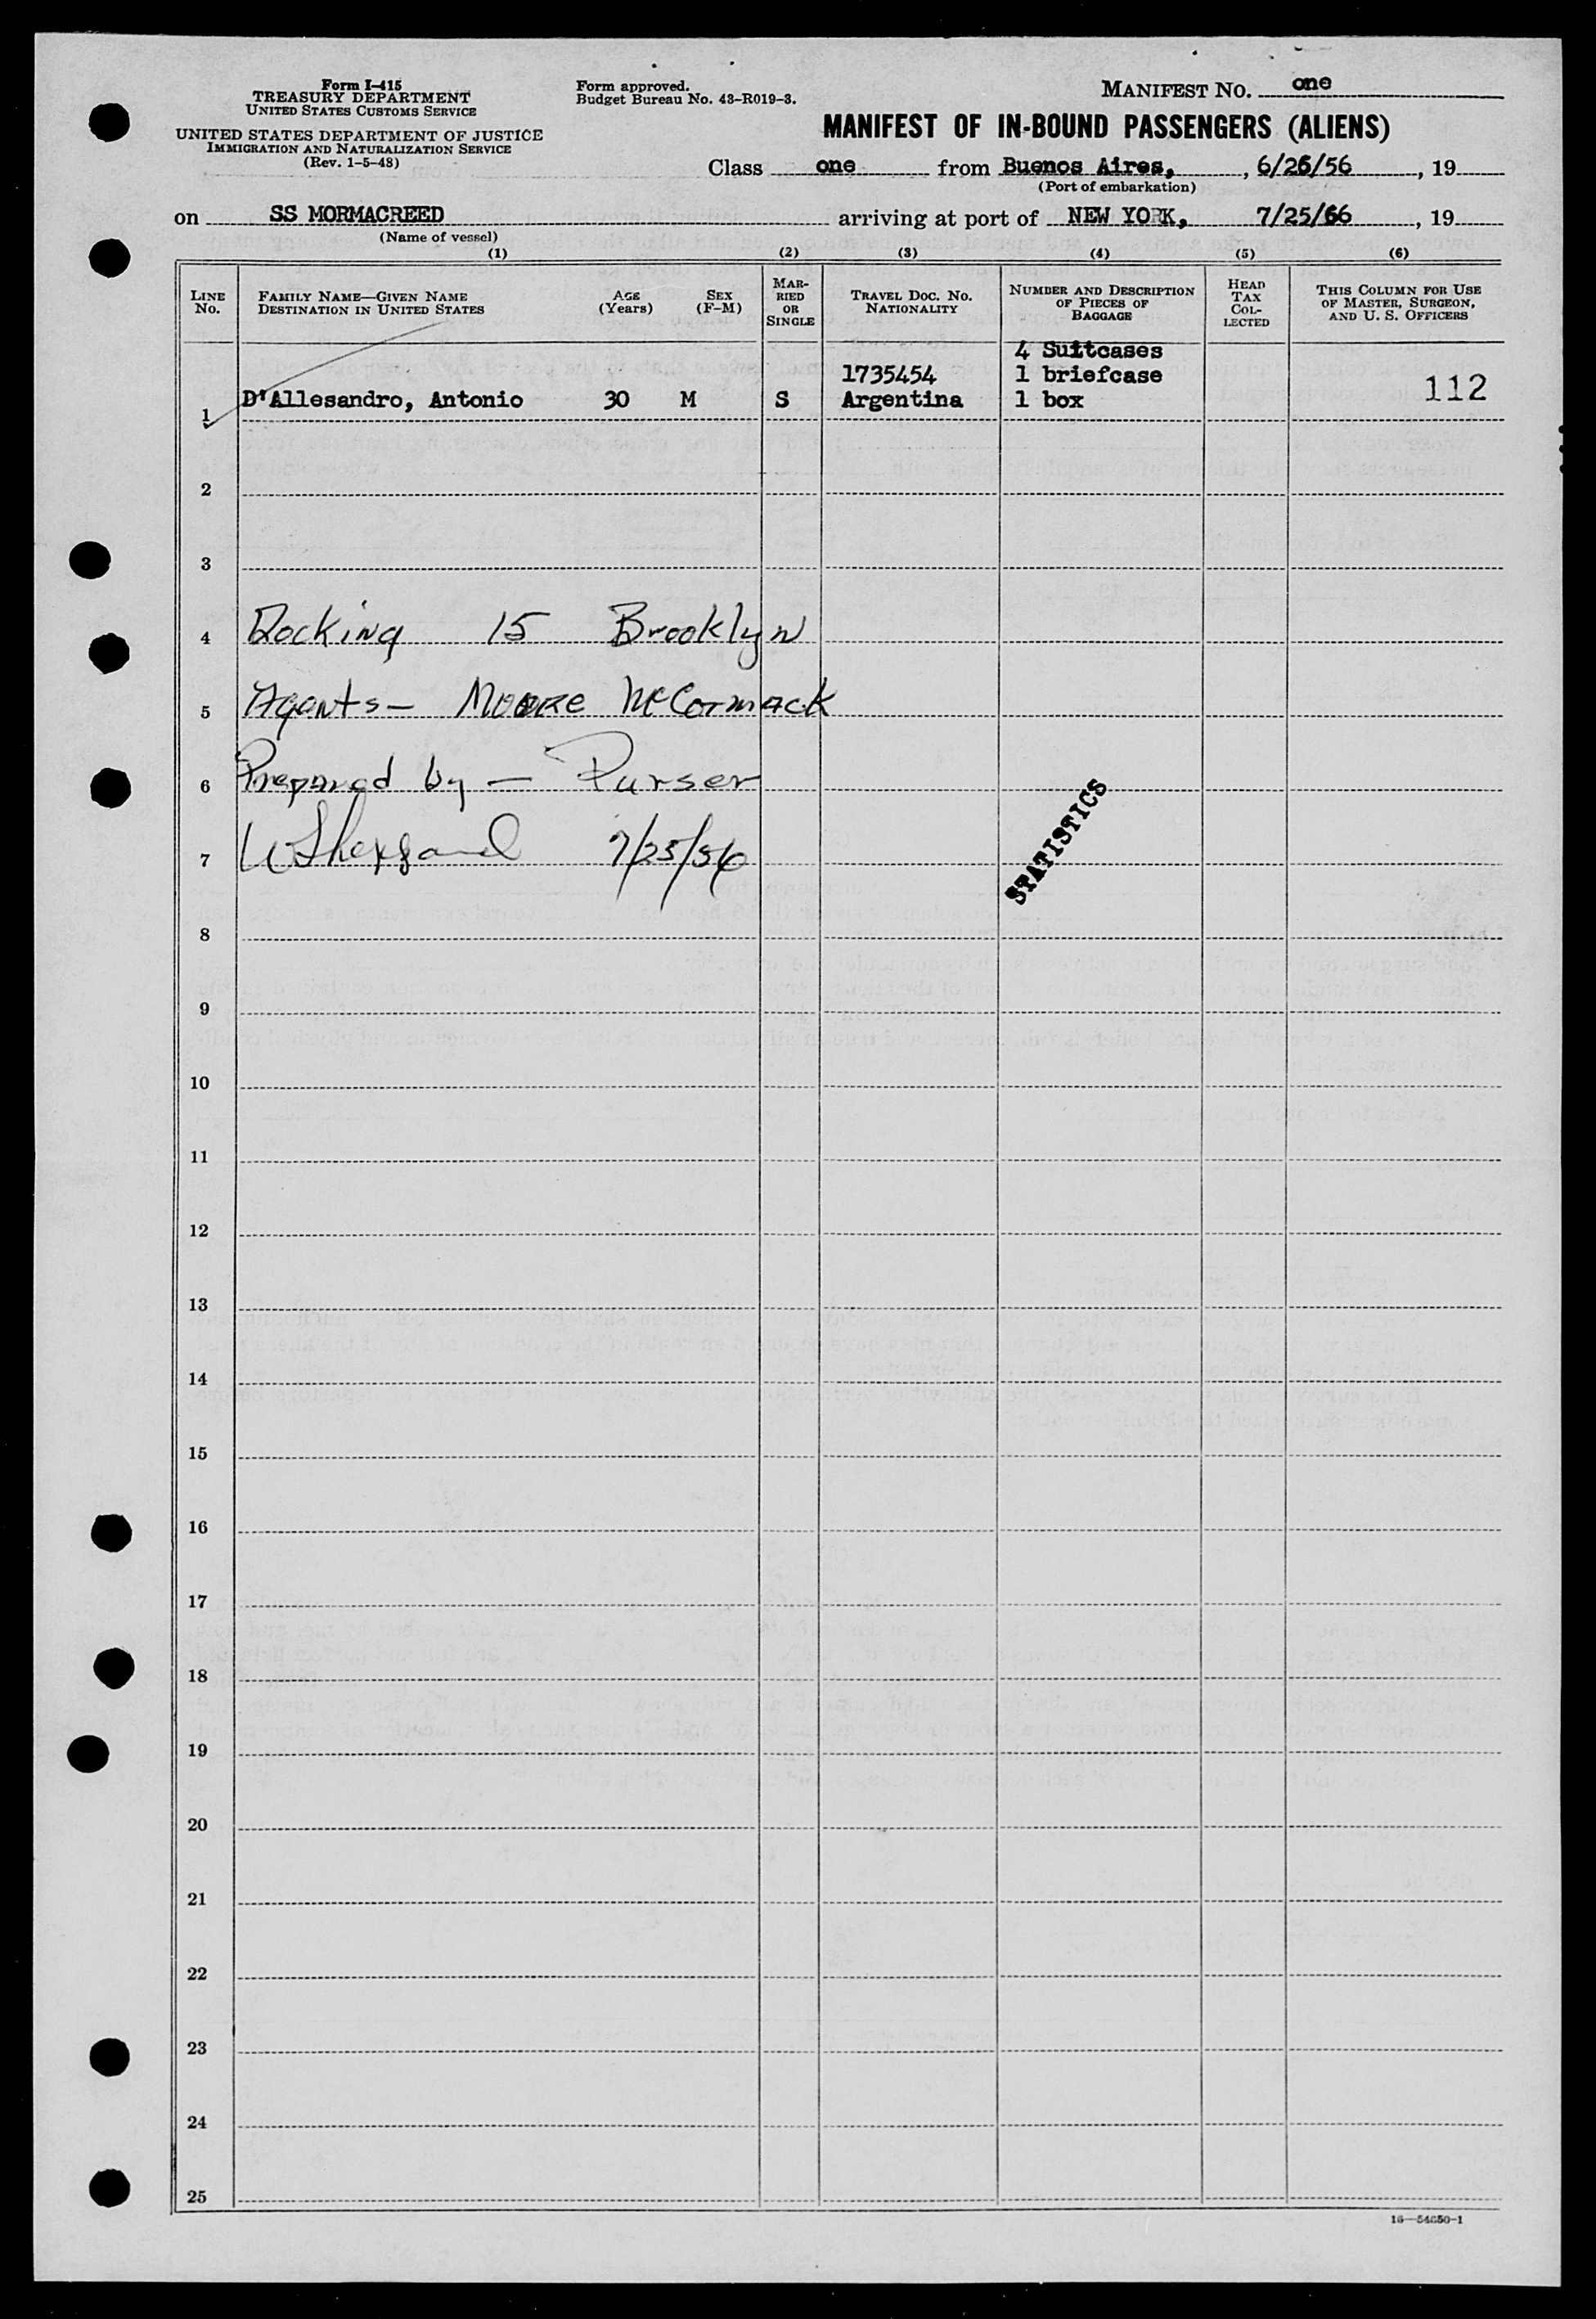 Form I-415
TREASURY DEPARTMENT
UNITED STATES CUSTOMS SERVICE
UNITED STATES DEPARTMENT OF JUSTICE
IMMIGRATION AND NATURALIZATION SERVICE
(Rev. 1-5-48)
Form approved.
Budget Bureau No. 43-R019-3.
MANIFEST NO. one
MANIFEST OF IN-BOUND PASSENGERS (ALIENS)
Class one from Buenos Aires, , 6/26/56 , 19
(Port of embarkation)
on SS MORMACREED arriving at port of NEW YORK, 7/25/66 , 19
(Name of vessel)
(1) (2) (3) (4) (5) (6)
LINE No. FAMILY NAME—GIVEN NAME DESTINATION IN UNITED STATES AGE (Years) SEX (F-M) MARRIED OR SINGLE TRAVEL DOC. NO. NATIONALITY NUMBER AND DESCRIPTION OF PIECES OF BAGGAGE HEAD TAX COLLECTED THIS COLUMN FOR USE OF MASTER, SURGEON, AND U. S. OFFICERS
4 Suitcases
1735454 1 briefcase
1 D'Allesandro, Antonio 30 M S Argentina 1 box 112
2
3
4 Docking 15 Brooklyn
5 Agents— Moore McCormack
6 Prepared by — Purser
7 7/25/56
STATISTICS
8
9
10
11
12
13
14
15
16
17
18
19
20
21
22
23
24
25
16—54650-1